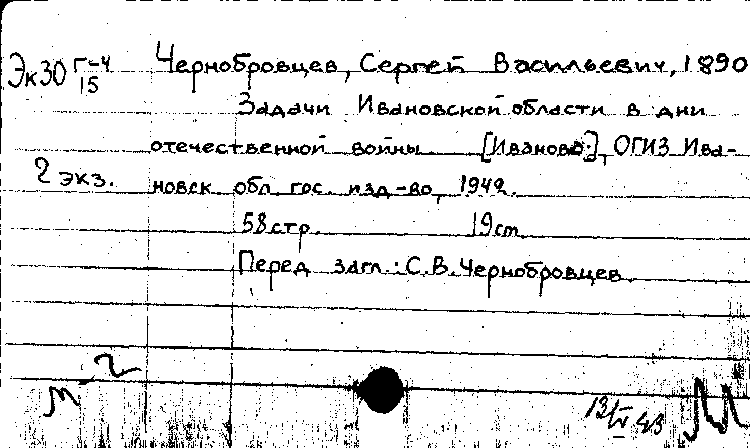 Эк30 Г-4 Чернобровцев, Сергей Васильевич, 1890
15
Задачи Ивановской области в дни
отечественной войны [Иваново], ОГИЗ Ива-
2 экз. новск обл. гос. изд-во, 1942.
58 стр. 19 cm
Перед загл.: С.В. Чернобровцев.